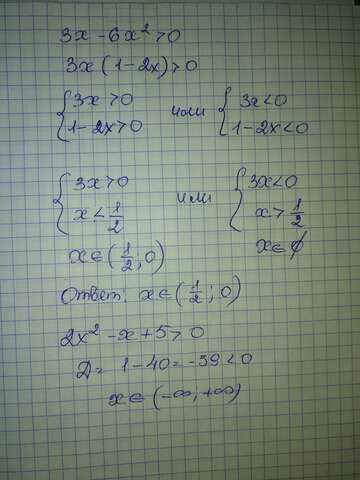 3x - 6x² > 0
3x (1 - 2x) > 0
{ 3x > 0 или { 3x < 0
{ 1 - 2x > 0 { 1 - 2x < 0
{ 3x > 0 или { 3x < 0
{ x < 1/2 { x > 1/2
x ∈ (1/2; 0) x ∈ ∅
Ответ: x ∈ (1/2; 0)
2x² - x + 5 > 0
Д = 1 - 40 = -39 < 0
x ∈ (-∞; +∞)